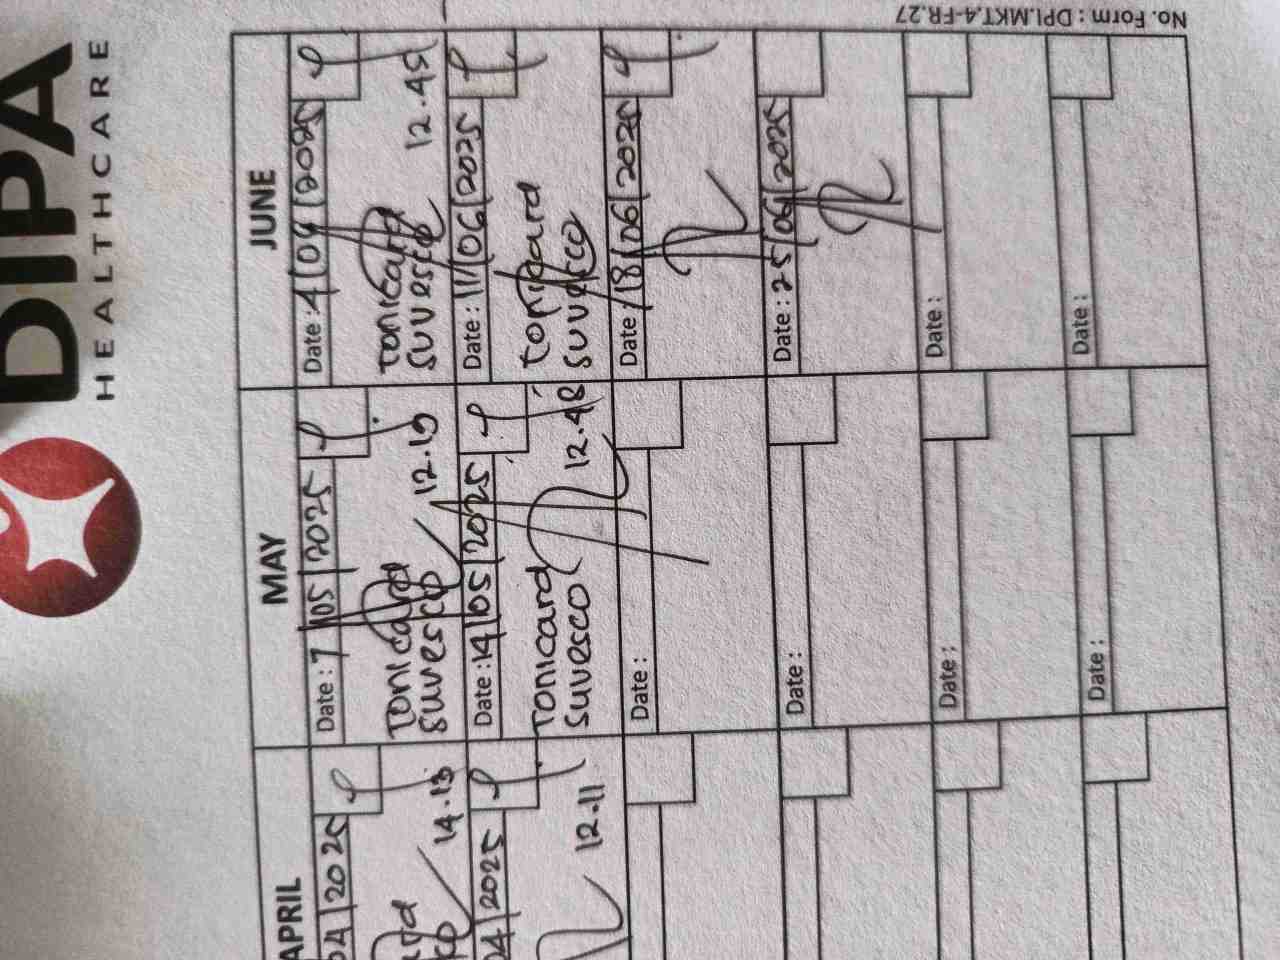 DIPA
HEALTHCARE
No. Form : DPI.MKT.4-FR.27
APRIL
04 | 2025
14.13
04 | 2025
12.11
MAY
Date : 7 | 05 | 2025
Tonicard
Suvesco
12.19
Date : 14 | 05 | 2025
Tonicard
Suvesco
12.48
Date :
Date :
Date :
Date :
JUNE
Date : 4 | 06 | 2025
Tonicard
Suvesco
12.45
Date : 11 | 06 | 2025
Tonicard
Suvesco
Date : 18 | 06 | 2025
Date : 25 | 06 | 2025
Date :
Date :